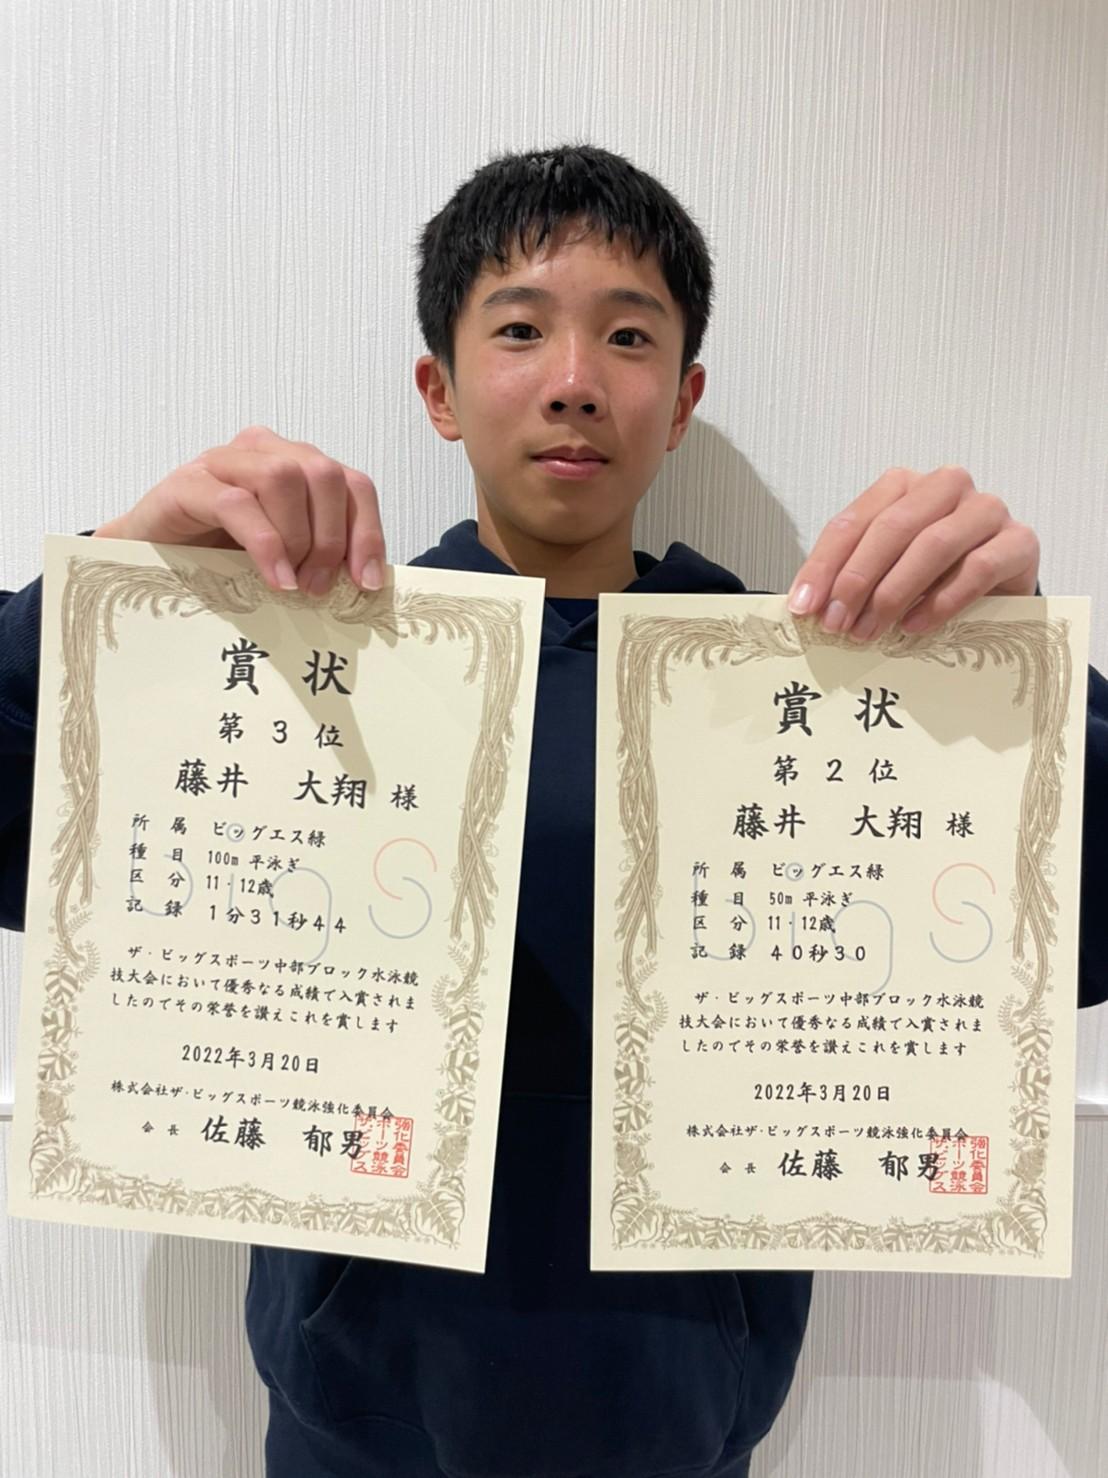 賞状
第3位
藤井 大翔 様
所属 ビッグエス緑
種目 100m 平泳ぎ
区分 11・12歳
記録 1分31秒44
ザ・ビッグスポーツ中部ブロック水泳競
技大会において優秀なる成績で入賞されま
したのでその栄誉を讃えこれを賞します
2022年3月20日
株式会社ザ・ビッグスポーツ競泳強化委員会
会長 佐藤 郁男
ザ・ビッグスポーツ競泳強化委員会
bigs
賞状
第2位
藤井 大翔 様
所属 ビッグエス緑
種目 50m 平泳ぎ
区分 11・12歳
記録 40秒30
ザ・ビッグスポーツ中部ブロック水泳競
技大会において優秀なる成績で入賞されま
したのでその栄誉を讃えこれを賞します
2022年3月20日
株式会社ザ・ビッグスポーツ競泳強化委員会
会長 佐藤 郁男
ザ・ビッグスポーツ競泳強化委員会
bigs